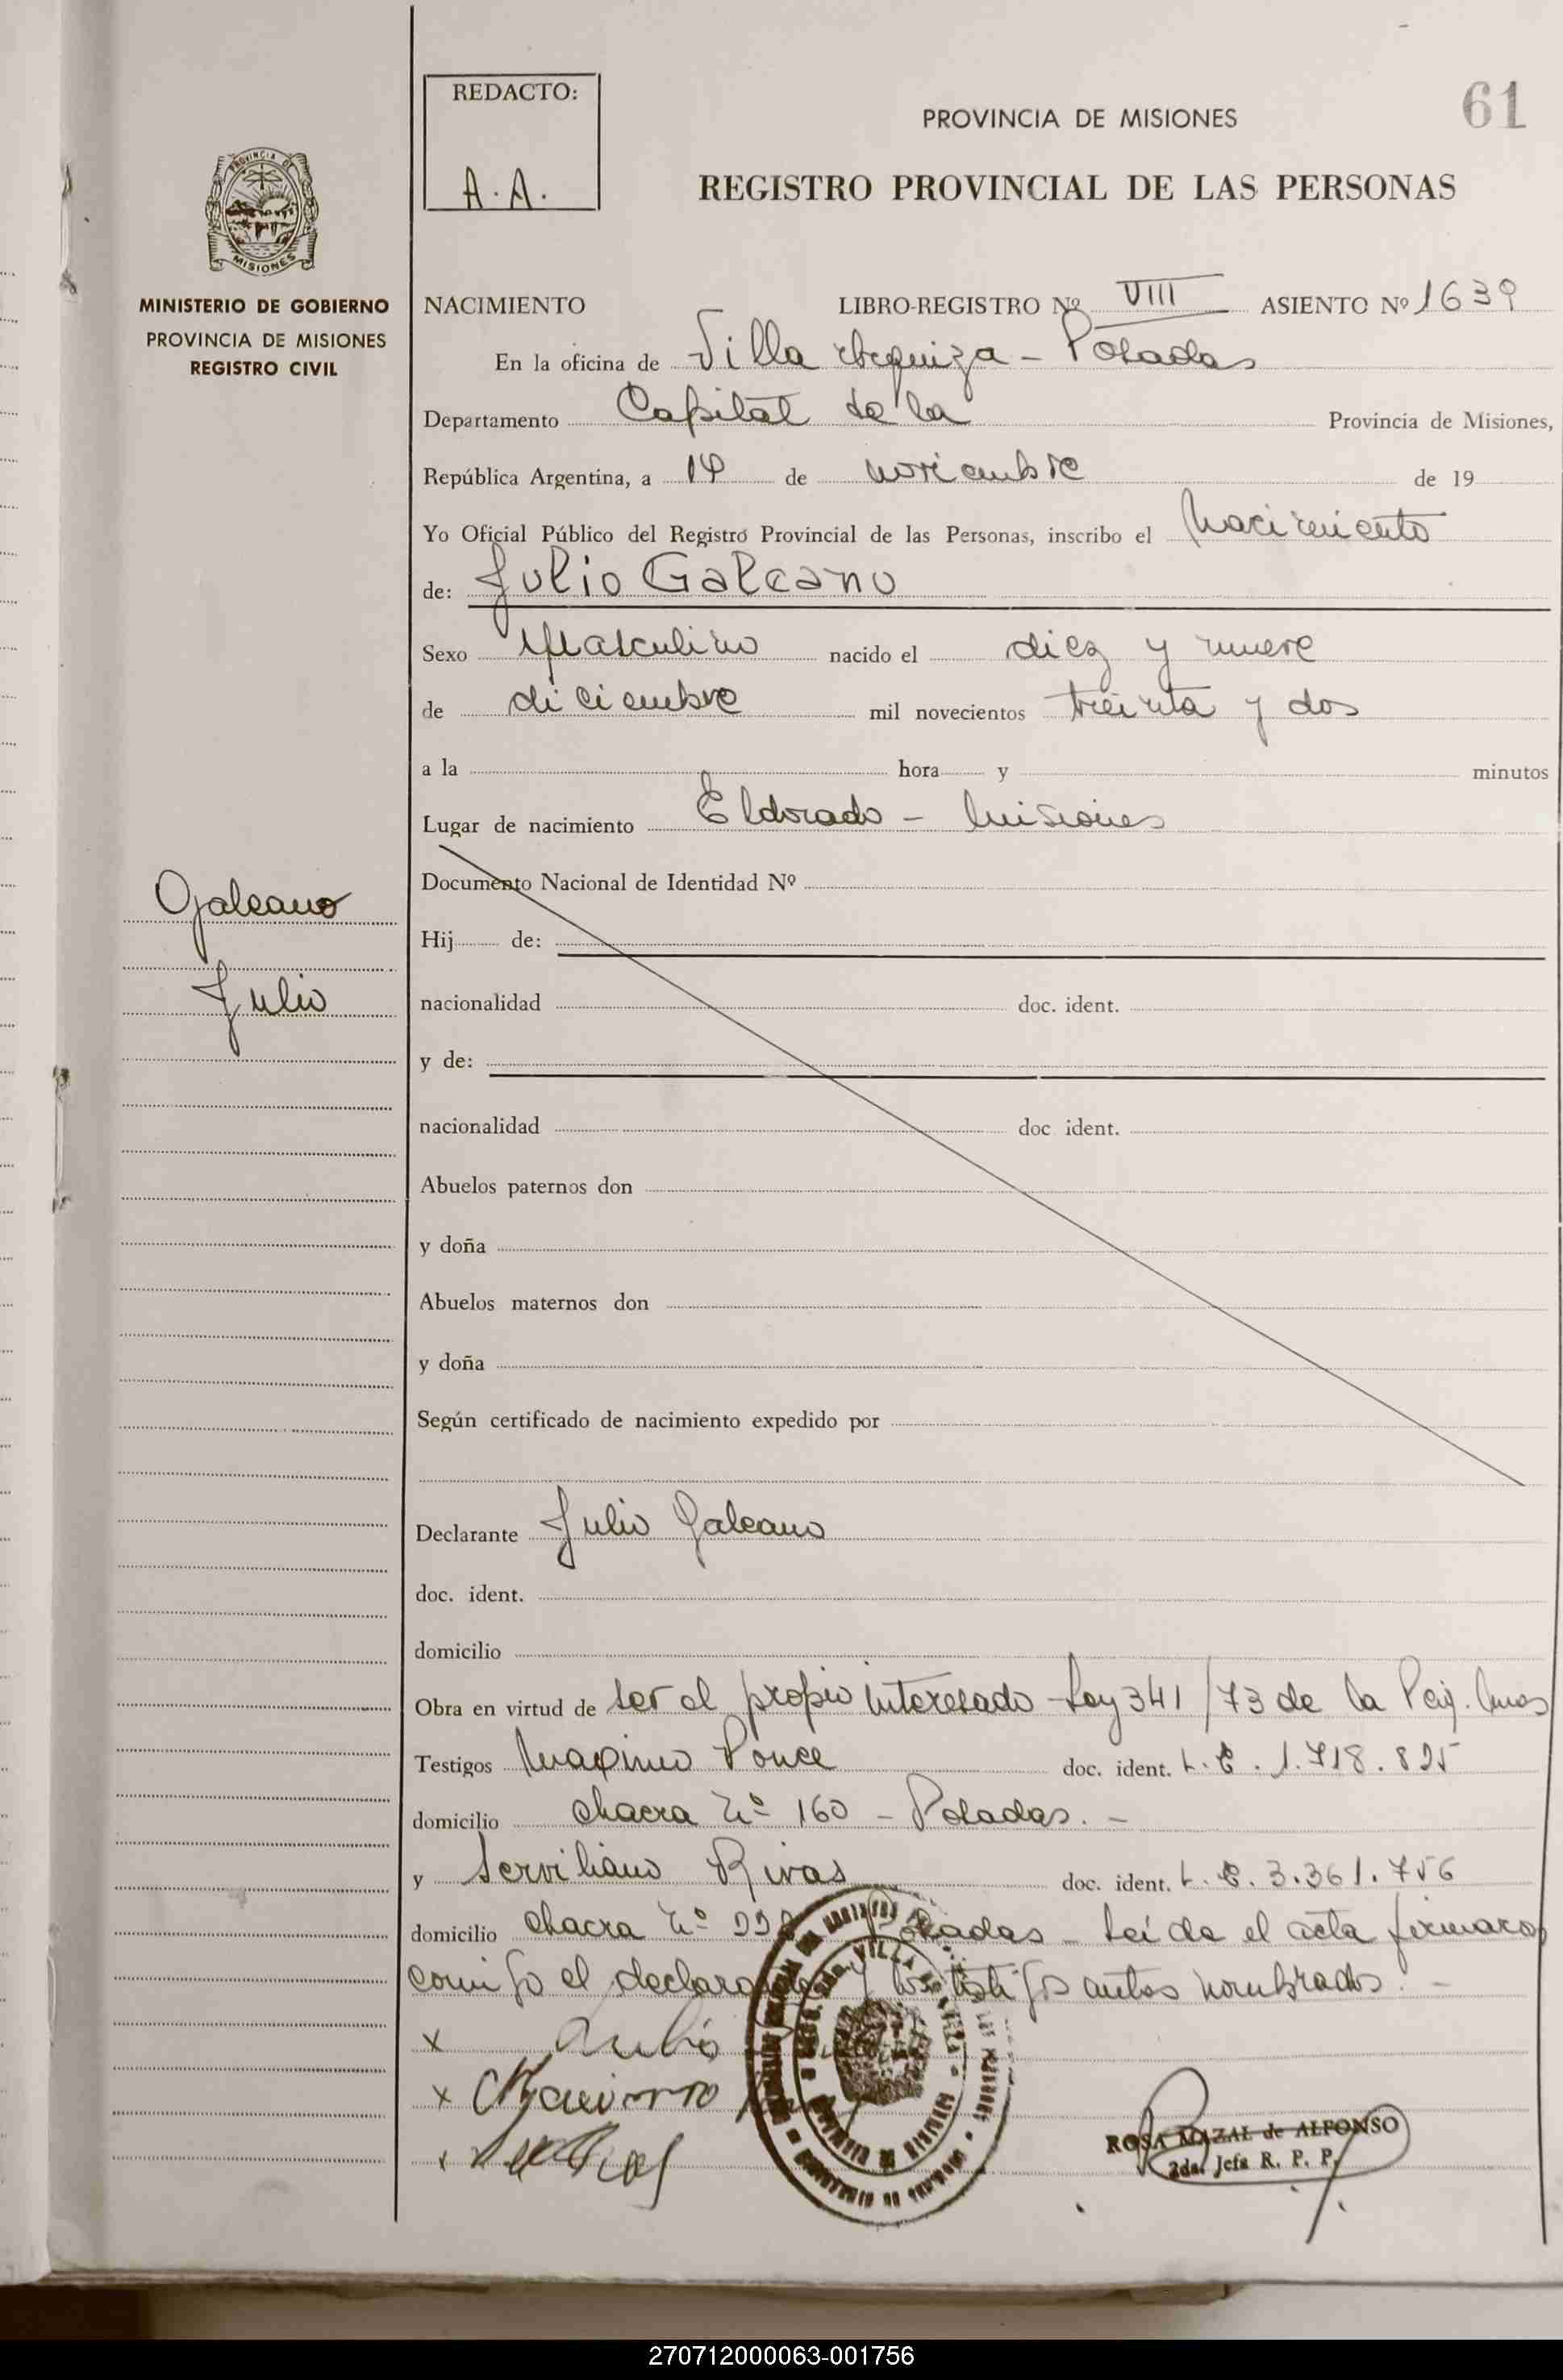 61
REDACTO:
A. A.
PROVINCIA DE MISIONES
REGISTRO PROVINCIAL DE LAS PERSONAS
PROVINCIA DE
MISIONES
MINISTERIO DE GOBIERNO
PROVINCIA DE MISIONES
REGISTRO CIVIL
NACIMIENTO LIBRO-REGISTRO Nº VIII ASIENTO Nº 1639
En la oficina de Villa Urquiza - Posadas
Departamento Capital de la Provincia de Misiones,
República Argentina, a 14 de noviembre de 19
Yo Oficial Público del Registro Provincial de las Personas, inscribo el Nacimiento
de: Julio Galeano
Sexo Masculino nacido el diez y nueve
de diciembre mil novecientos treinta y dos
a la hora y minutos
Lugar de nacimiento Eldorado - Misiones
Documento Nacional de Identidad Nº
Galeano
Julio
Hij de:
nacionalidad doc. ident.
y de:
nacionalidad doc ident.
Abuelos paternos don
y doña
Abuelos maternos don
y doña
Según certificado de nacimiento expedido por
Declarante Julio Galeano
doc. ident.
domicilio
Obra en virtud de ser el propio interesado - Ley 341/73 de la Pcia. Mnes
Testigos Maximo Ponce doc. ident. L. E. 1.718.825
domicilio Chacra Nº 160 - Posadas. -
y Serviliano Rivas doc. ident. L. E. 3.361.756
domicilio Chacra Nº Posadas - Leída el acta firmaron
comigo el declarante y los testigos antes nombrados. -
x Julio
x Maximo
x
ROSA MAZAL de ALFONSO
2da. Jefa R. P. P.
270712000063-001756